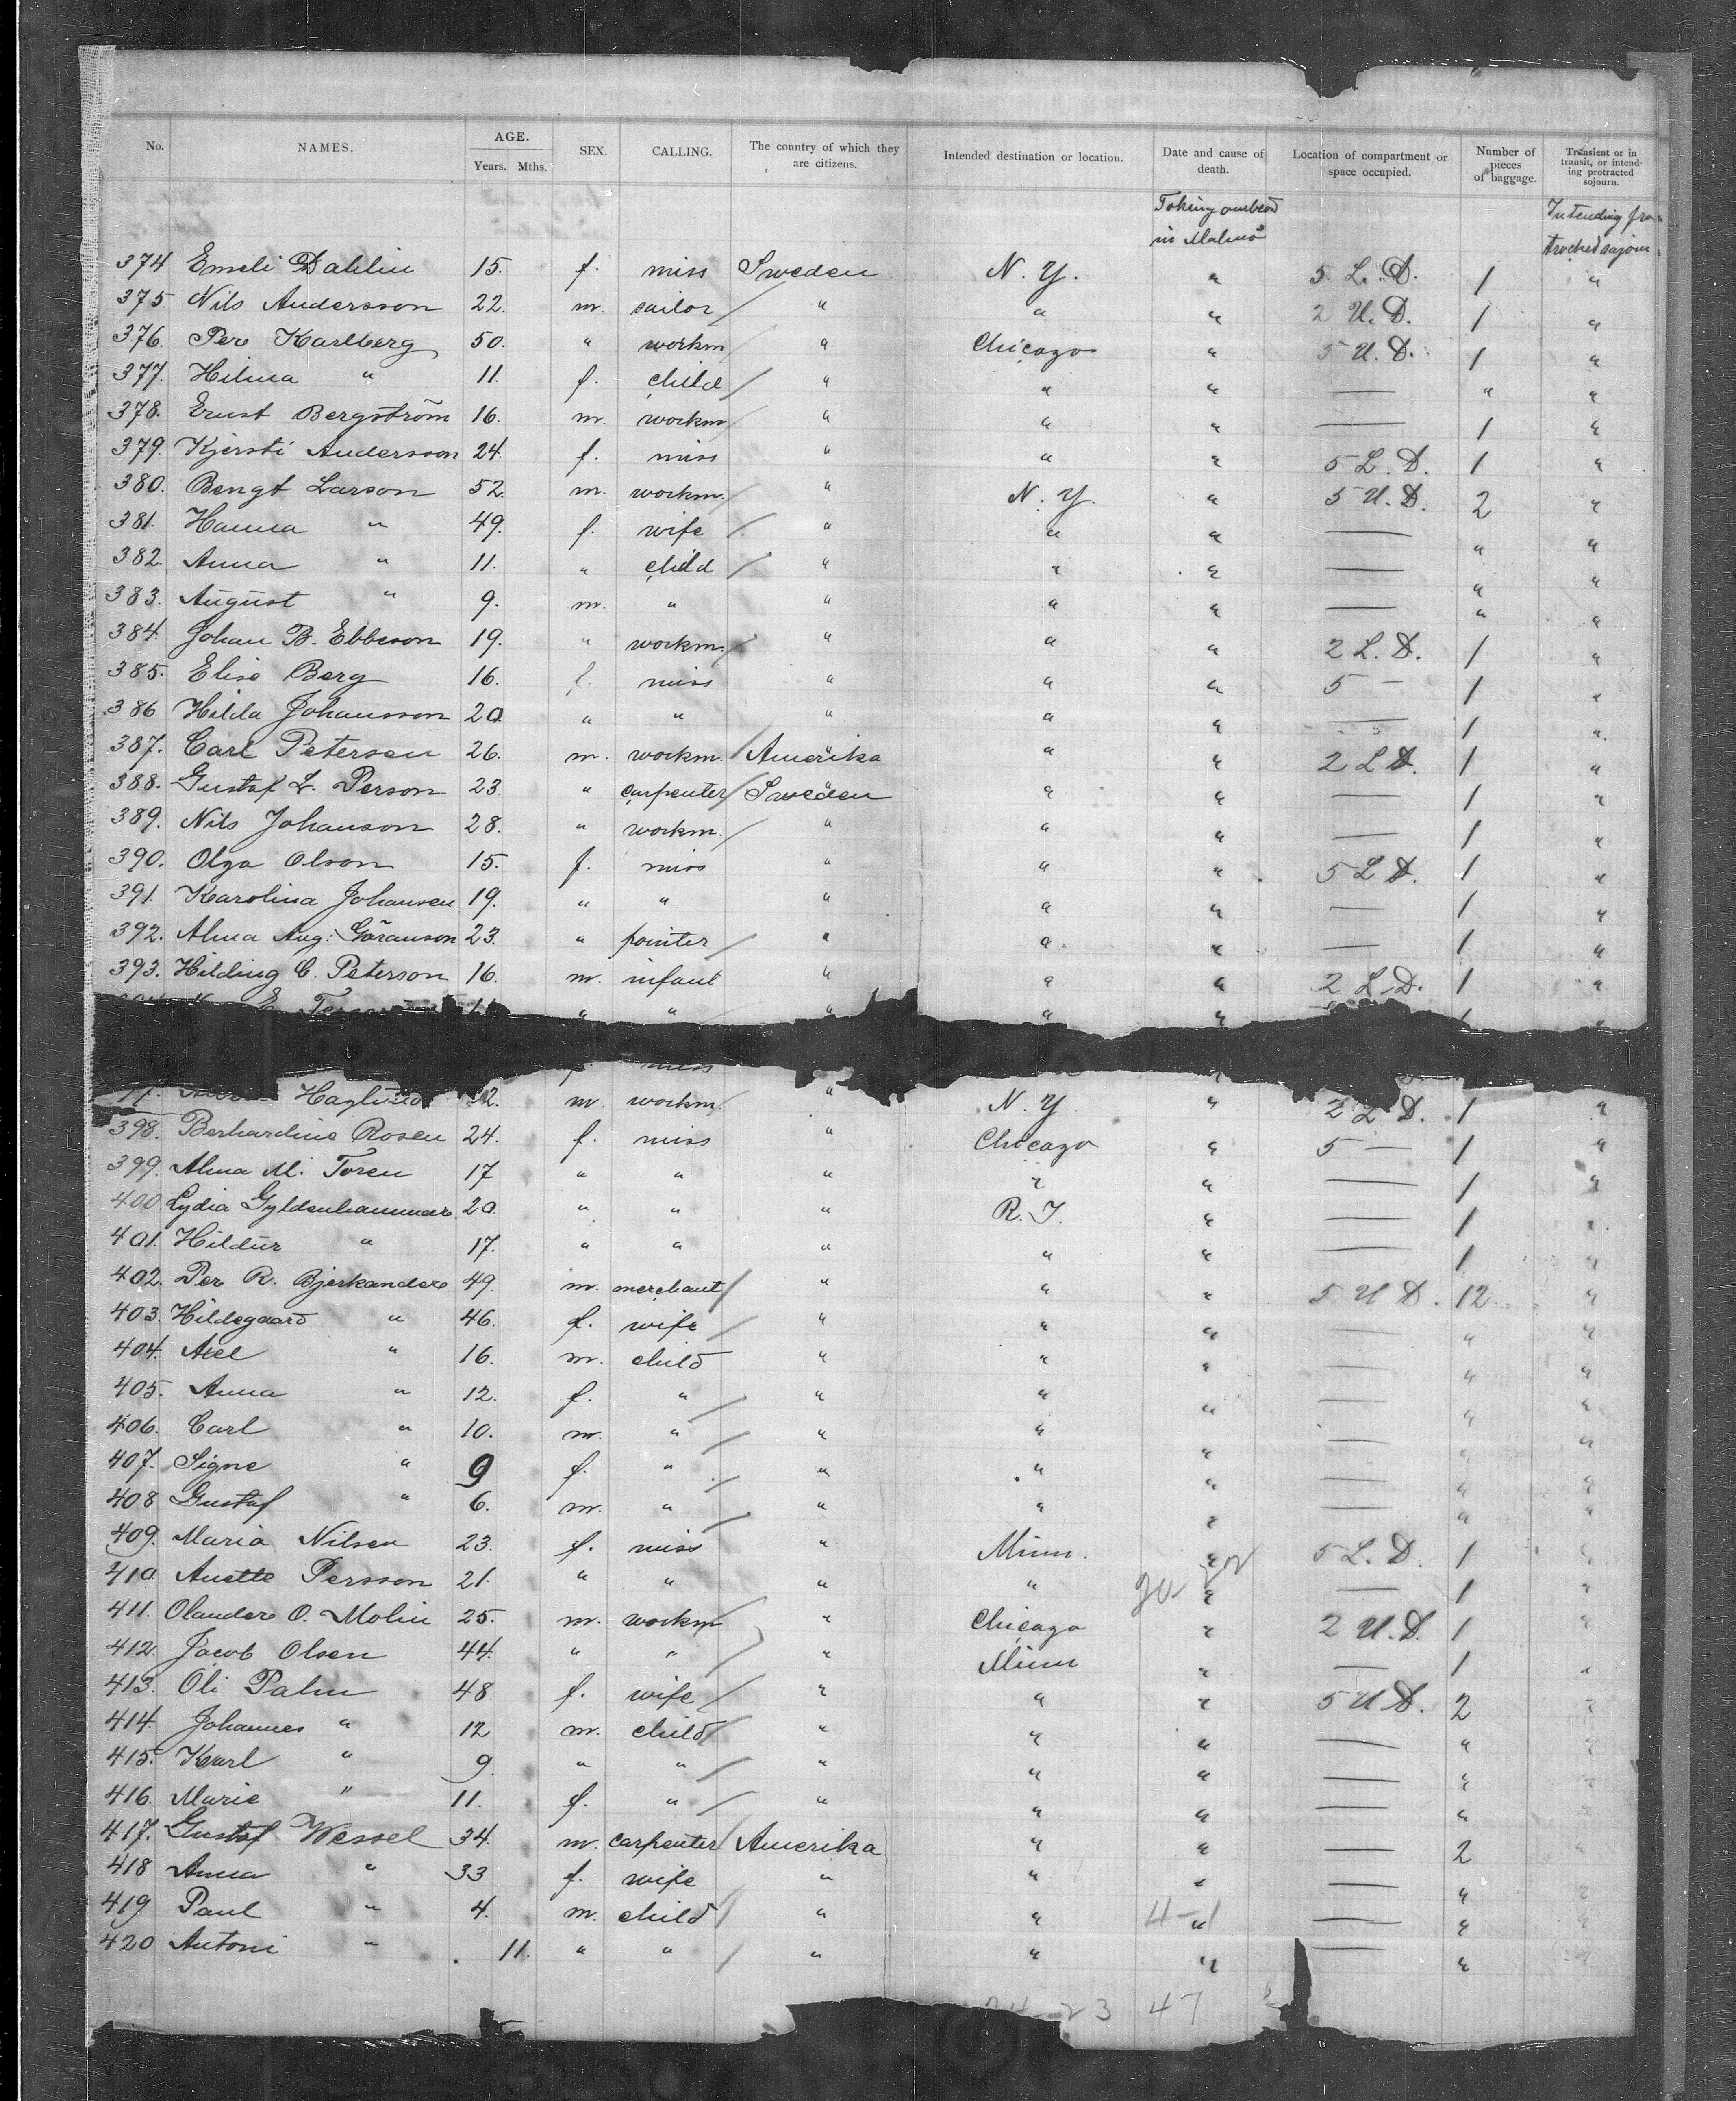 No. NAMES. AGE. Years. Mths. SEX. CALLING. The country of which they are citizens. Intended destination or location. Date and cause of death. Location of compartment or space occupied. Number of pieces of baggage. Transient or in transit, or intending protracted sojourn.
in Malmö Intending
374 Emeli Dahlin 15. f. miss Sweden N. Y. " 5 L. D. 1 "
375. Nils Andersson 22. m. sailor / " " " 2 U. D. 1 "
376. Per Karlberg 50. " workm / " Chicago " 5 U. D. 1 "
377. Hilma " 11. f. child / " " " — " "
378. Ernst Bergström 16. m. workm / " " " — 1 "
379. Kjersti Andersson 24. f. miss " " " 5 L. D. 1 "
380. Bengt Larson 52. m. workm. / " N. Y. " 5 U. D. 2 "
381. Hanna " 49. f. wife / " " " — " "
382. Anna " 11. " child / " " " — " "
383. August " 9. m. " " " " — " "
384. Johan B. Ebbeson 19. " workm / " " " 2 L. D. 1 "
385. Elise Berg 16. f. miss " " " 5 — 1 "
386 Hilda Johansson 20 " " " " " — 1 "
387. Carl Petersen 26. m. workm. / Amerika " " 2 L D. 1 "
388. Gustaf L. Person 23. " carpenter / Sweden " " — 1 "
389. Nils Johanson 28. " workm. / " " " — 1 "
390. Olga Olson 15. f. miss " " " 5 L D. 1 "
391. Karolina Johansen 19. " " " " " — 1 "
392. Alma Aug. Göranson 23. " pointer / " " " — 1 "
393. Hilding C. Peterson 16. m. infant " " " 2 L. D. 1 "
E. " " " " " "
miss
Haglund 32. m. workm. " N. Y. " 2 L D. 1 "
398. Berhardine Rosen 24. f. miss " Chicago " 5 — 1 "
399. Alma M. Toren 17 " " " " " — 1 "
400. Lydia Gyldenhammar 20. " " " R. I. " — 1 "
401. Hildur " 17. " " " " " — 1 "
402. Per R. Bjerkander 49. m. merchant / " " " 5 U D. 12. "
403. Hildegaard " 46. f. wife / " " " — " "
404. Axel " 16. m. child " " " — " "
405. Anna " 12. f. " / " " " — " "
406. Carl " 10. m. " / " " " — " "
407. Signe " 9 f. " / " " " — " "
408 Gustaf " 6. m. " / " " " — " "
409. Maria Nilsen 23. f. miss " Minn. " 5 L. D. 1 "
410. Anette Persson 21. " " " " " — 1 "
411. Olander O. Molin 25. m. workm / " Chicago " 2 U. D. 1 "
412. Jacob Olsen 44. " " / " Minn " — 1 "
413. Oli Palm 48. f. wife / " " " 5 U D. 2 "
414. Johannes " 12 m. child / " " " — " "
415. Karl " 9. " " / " " " — " "
416. Marie " 11. f. " / " " " — " "
417. Gustaf Wessel 34. m. carpenter / Amerika " " — 2 "
418 Anna " 33 f. wife " " " — " "
419 Paul " 4. m. child / " " 4-1 " — " "
420 Antoni " 11. " " / " " " — "
23 47